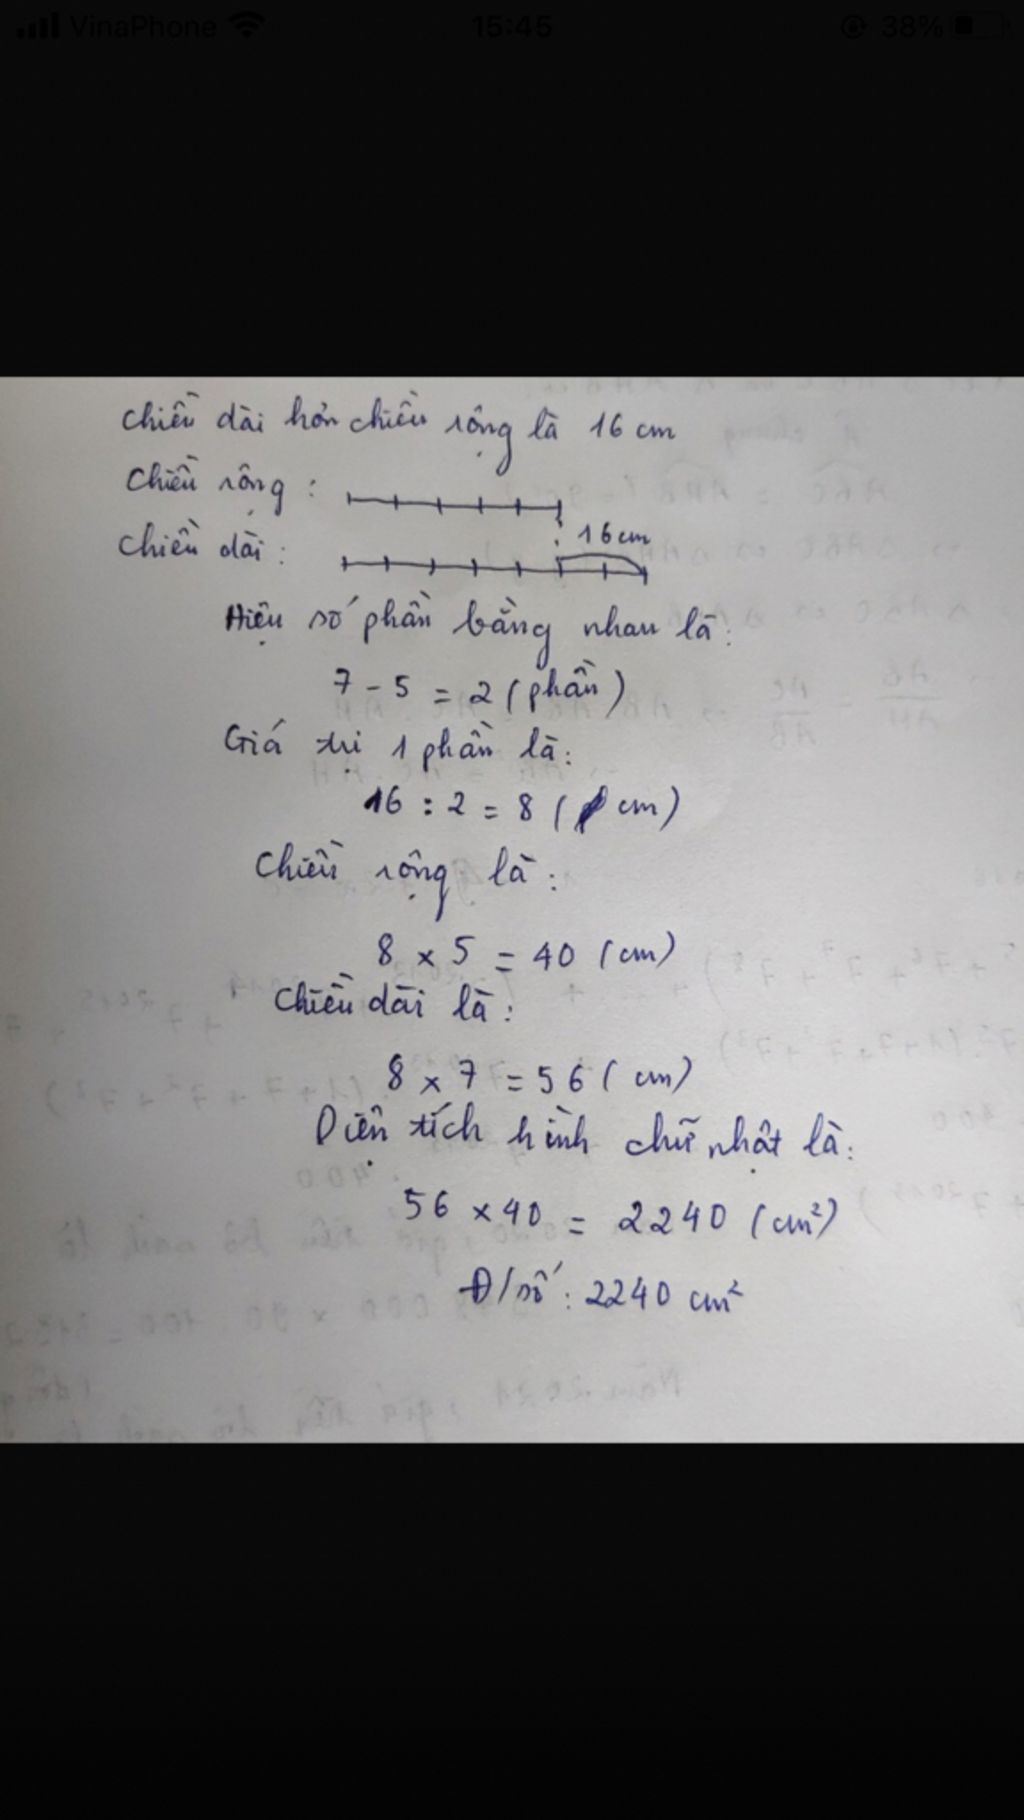 VinaPhone 15:45 38%
Chiều dài hơn chiều rộng là 16 cm
Chiều rộng :
16 cm
Chiều dài :
Hiệu số phần bằng nhau là :
7 - 5 = 2 (phần)
Giá trị 1 phần là :
16 : 2 = 8 ( cm)
Chiều rộng là :
8 x 5 = 40 (cm)
Chiều dài là :
8 x 7 = 56 ( cm)
Diện tích hình chữ nhật là :
56 x 40 = 2240 (cm²)
Đ/số : 2240 cm²